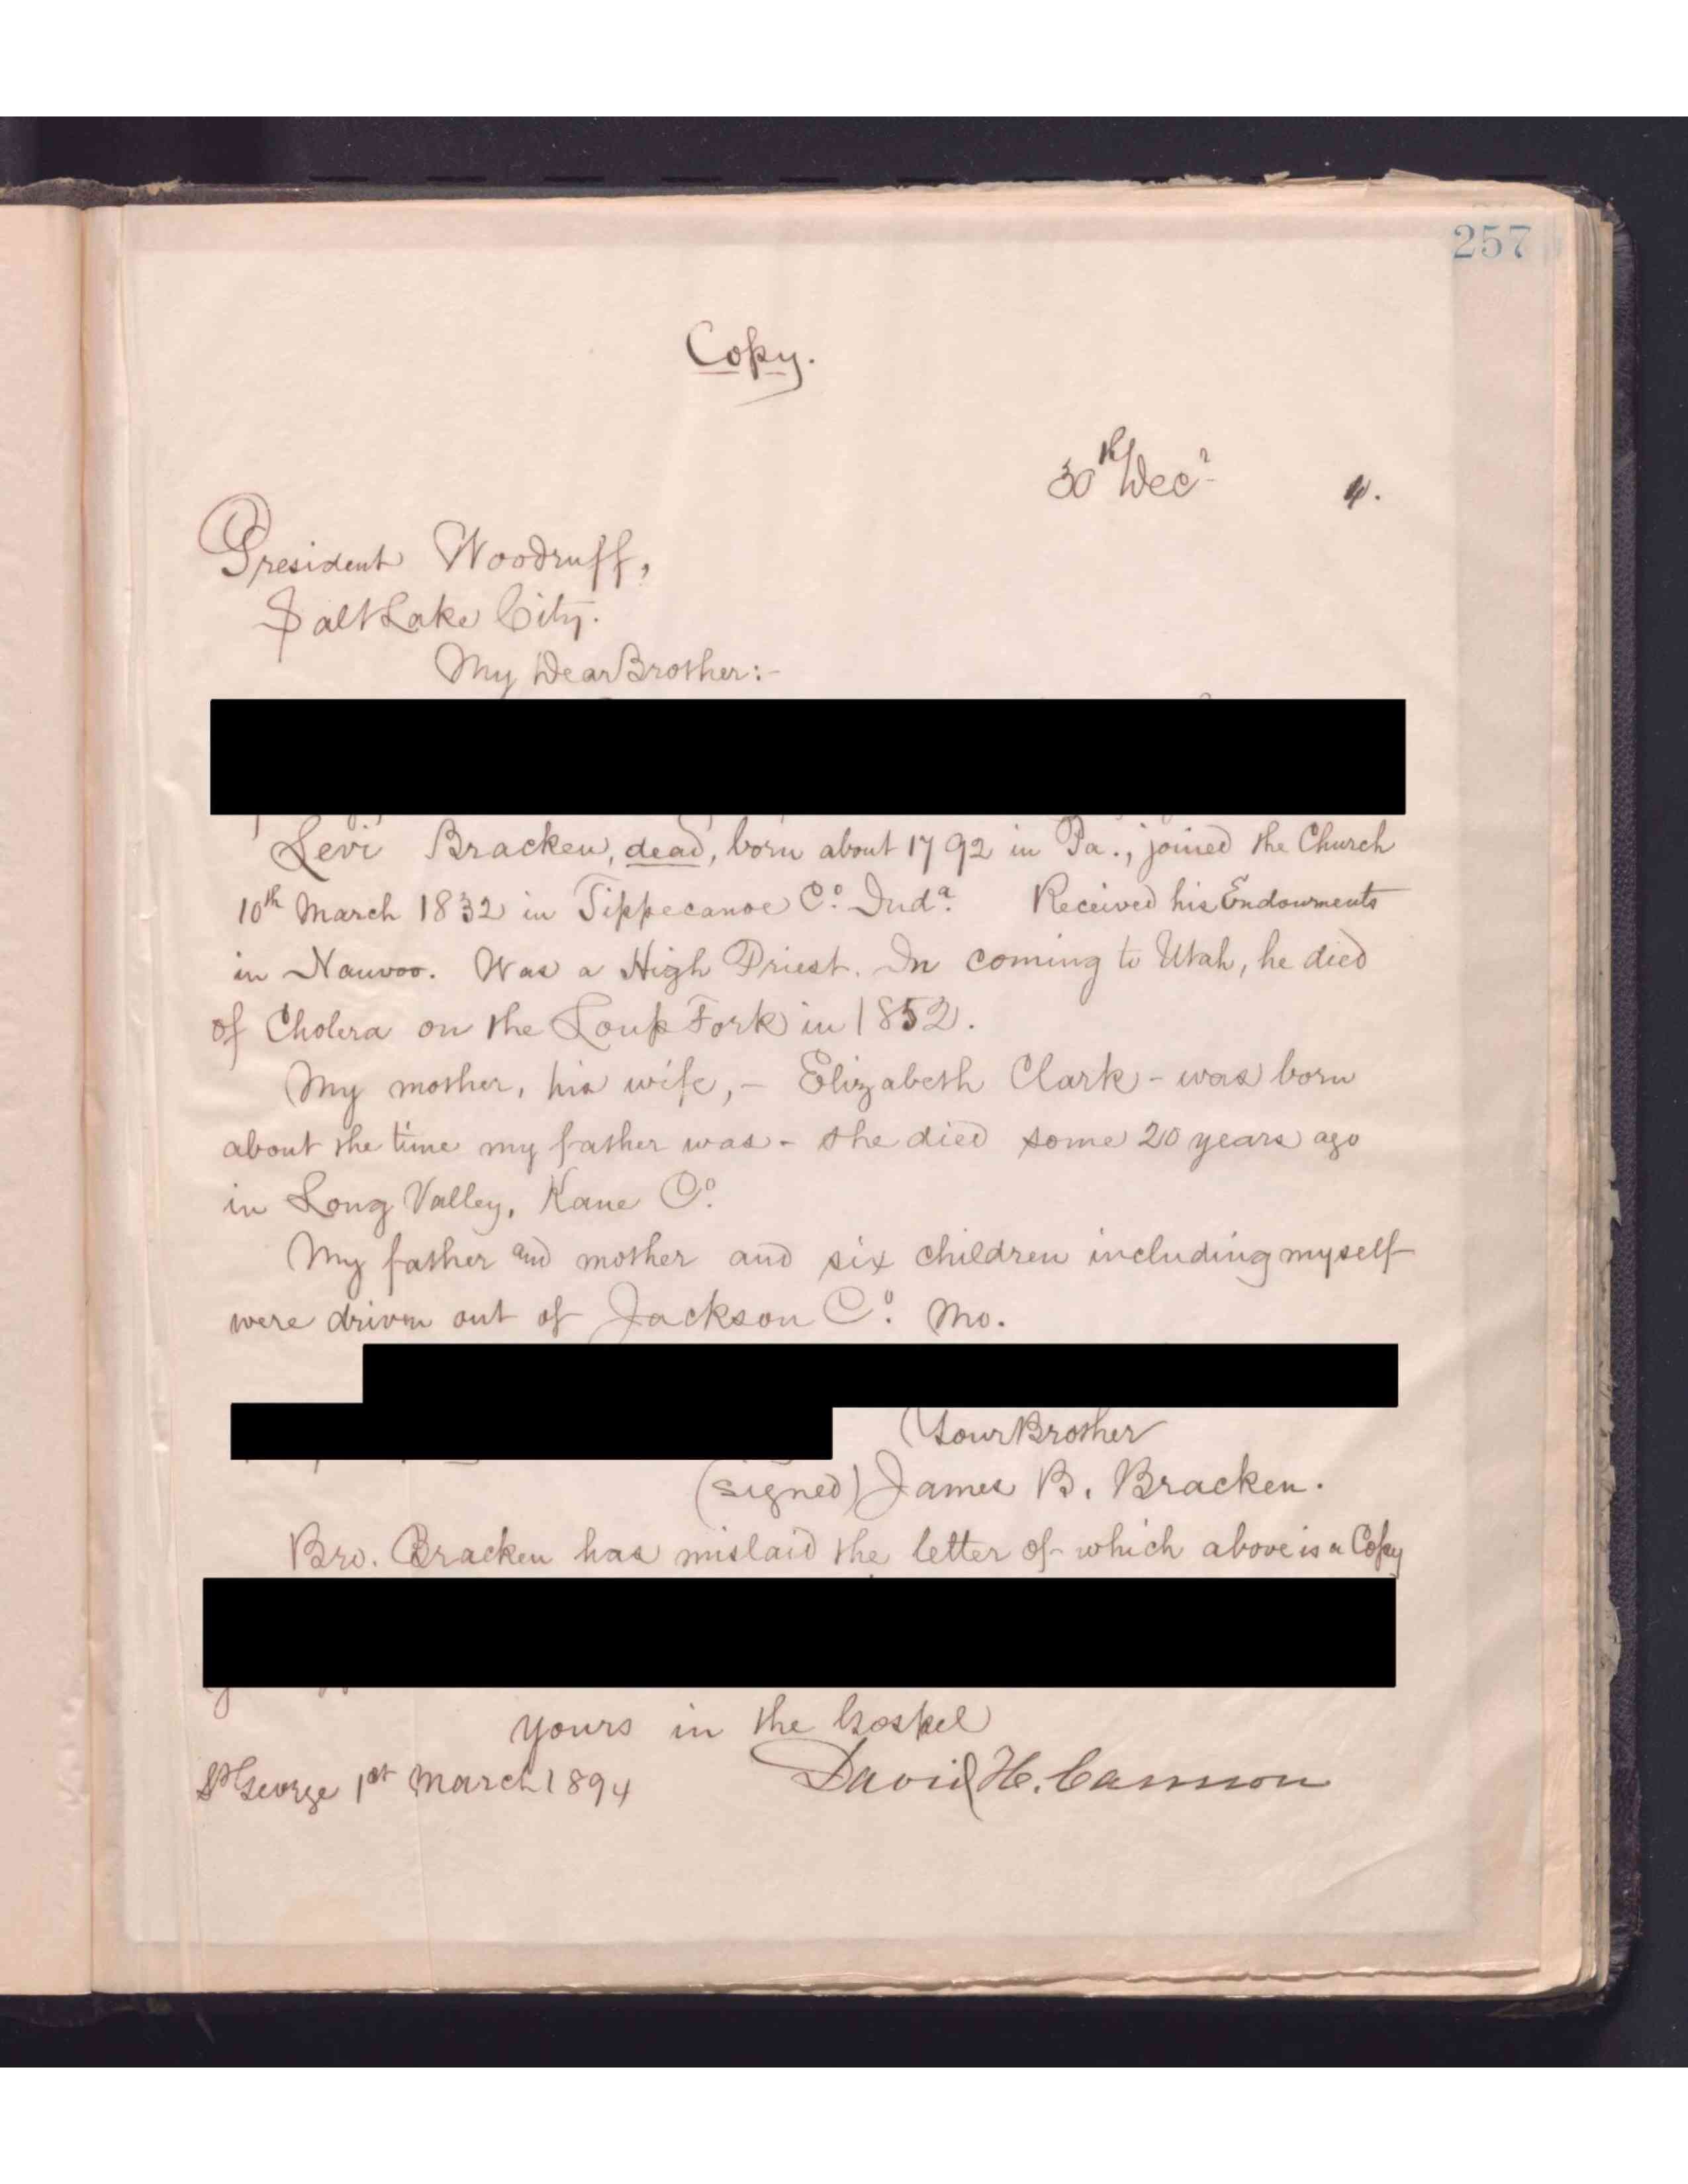 257
Copy.
30th Decr 4.
President Woodruff,
Salt Lake City.
My Dear Brother:-
Levi Bracken, dead, born about 1792 in Pa., joined the Church
10th March 1832 in Tippecanoe Co. Inda. Received his Endowments
in Nauvoo. Was a High Priest. In coming to Utah, he died
of Cholera on the Loup Fork in 1852.
My mother, his wife, - Elizabeth Clark - was born
about the time my father was - she died some 20 years ago
in Long Valley, Kane Co.
My father and mother and six children including myself
were driven out of Jackson Co. Mo.
Your Brother
(signed) James B. Bracken.
Bro. Bracken has mislaid the letter of which above is a Copy
yours in the Gospel
St George 1st March 1894 David H. Cannon